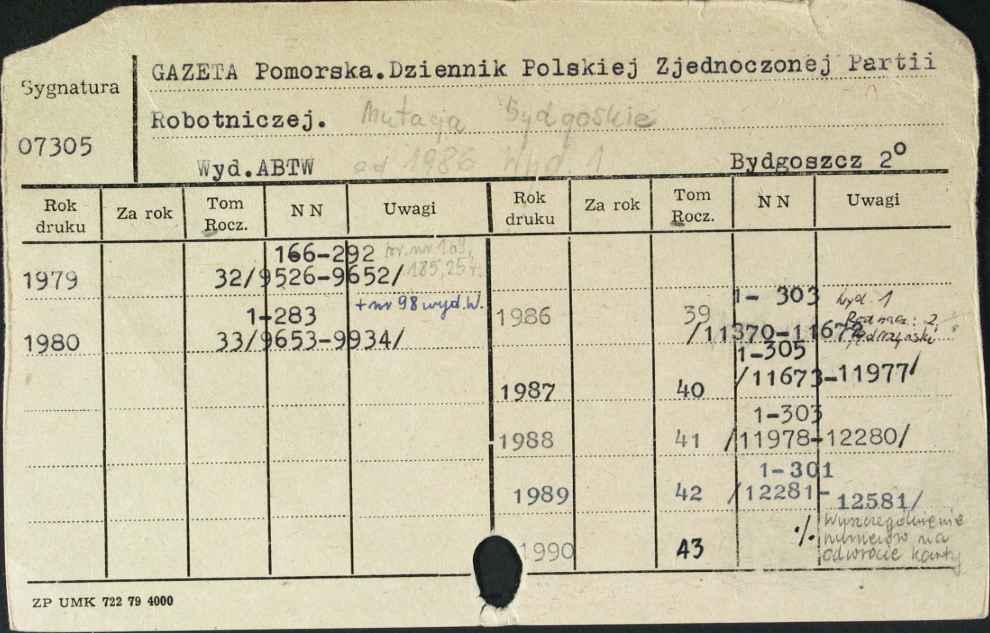 Sygnatura
07305
GAZETA Pomorska.Dziennik Polskiej Zjednoczonej Partii
Robotniczej. Mutacja Bydgoskie
Wyd.ABTW od 1986 Wyd 1 Bydgoszcz 2°
Rok druku Za rok Tom Rocz. N N Uwagi Rok druku Za rok Tom Rocz. N N Uwagi
166-292
1979 32/9526-9652/ 185,25
+ nr 98 wyd. W.
1-283
1980 33/9653-9934/
1- 303 Wyd 1
1986 39 /11370-11672 Red nacz: Z.
1-305
1987 40 /11673-11977/
1-303
1988 41 /11978-12280/
1-301
1989 42 /12281-12581/
1990 43 ./. Wyszczególnienie
numerów na
odwrocie karty
ZP UMK 722 79 4000